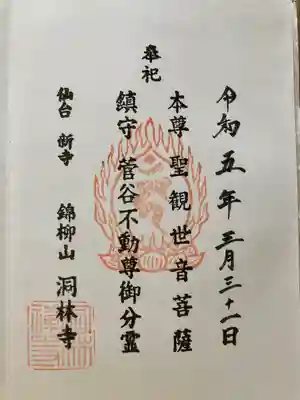 令和五年三月三十一日
奉祀
本尊 聖観世音菩薩
鎮守 菅谷不動尊御分霊
仙台 新寺 錦柳山 洞林寺